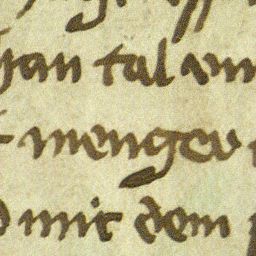 han tal vn
menger
mit dem